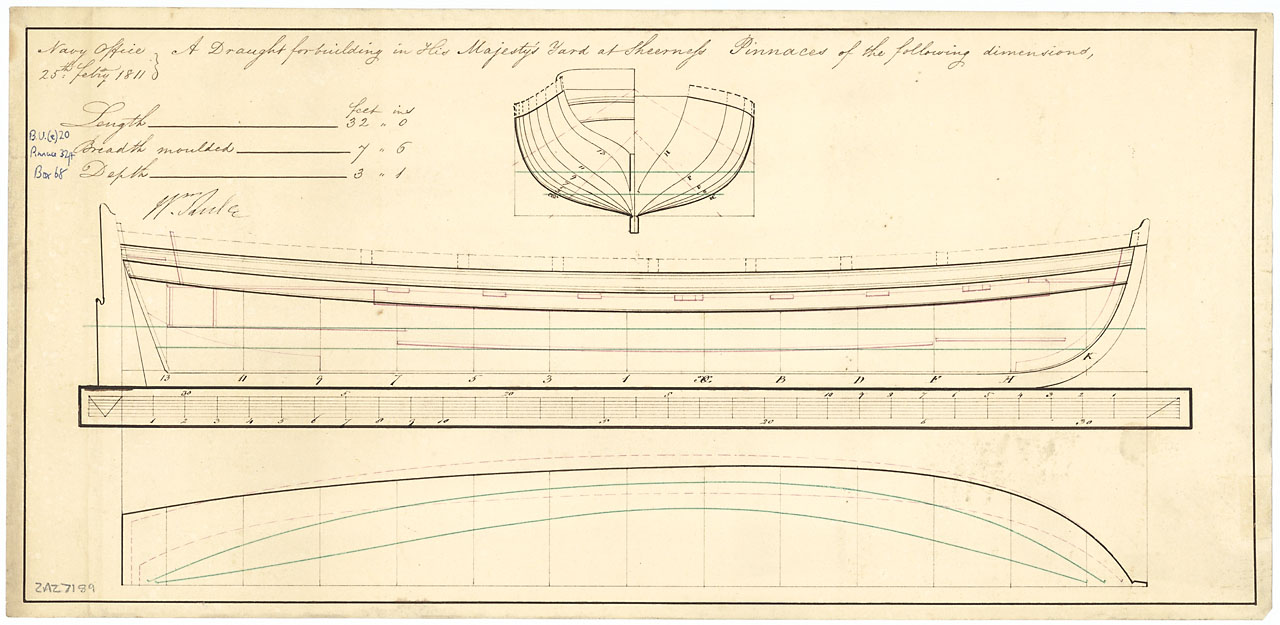 Navy Office } A Draught for building in His Majesty's Yard at Sheerness Pinnaces of the following dimensions,
25th Febry 1811
feet ins
Length 32 " 0
Breadth moulded 7 " 6
Depth 3 " 1
B.U.(e) 20
Pinnace 32ft
Box 68
Wm Rule
13 11 9 7 5 3 1 B D F H K
30 5 20 15 10 9 8 7 6 5 4 3 2 1
1 2 3 4 5 6 7 8 9 10 15 20 30
ZAZ7189